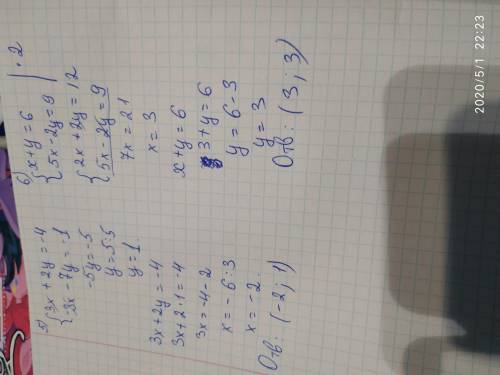 5) { 3x + 2y = -4
-3x - 7y = -1
-5y = -5
y = 5:5
y = 1
3x + 2y = -4
3x + 2·1 = 4
3x = -4 - 2
x = -6:3
x = -2.
Отв: (-2; 1)
6) { x + y = 6 | ·2
5x - 2y = 9
{ 2x + 2y = 12
5x - 2y = 9
7x = 21
x = 3
x + y = 6
3 + y = 6
y = 6 - 3
y = 3
Отв: (3; 3)
2020/5/1 22:23